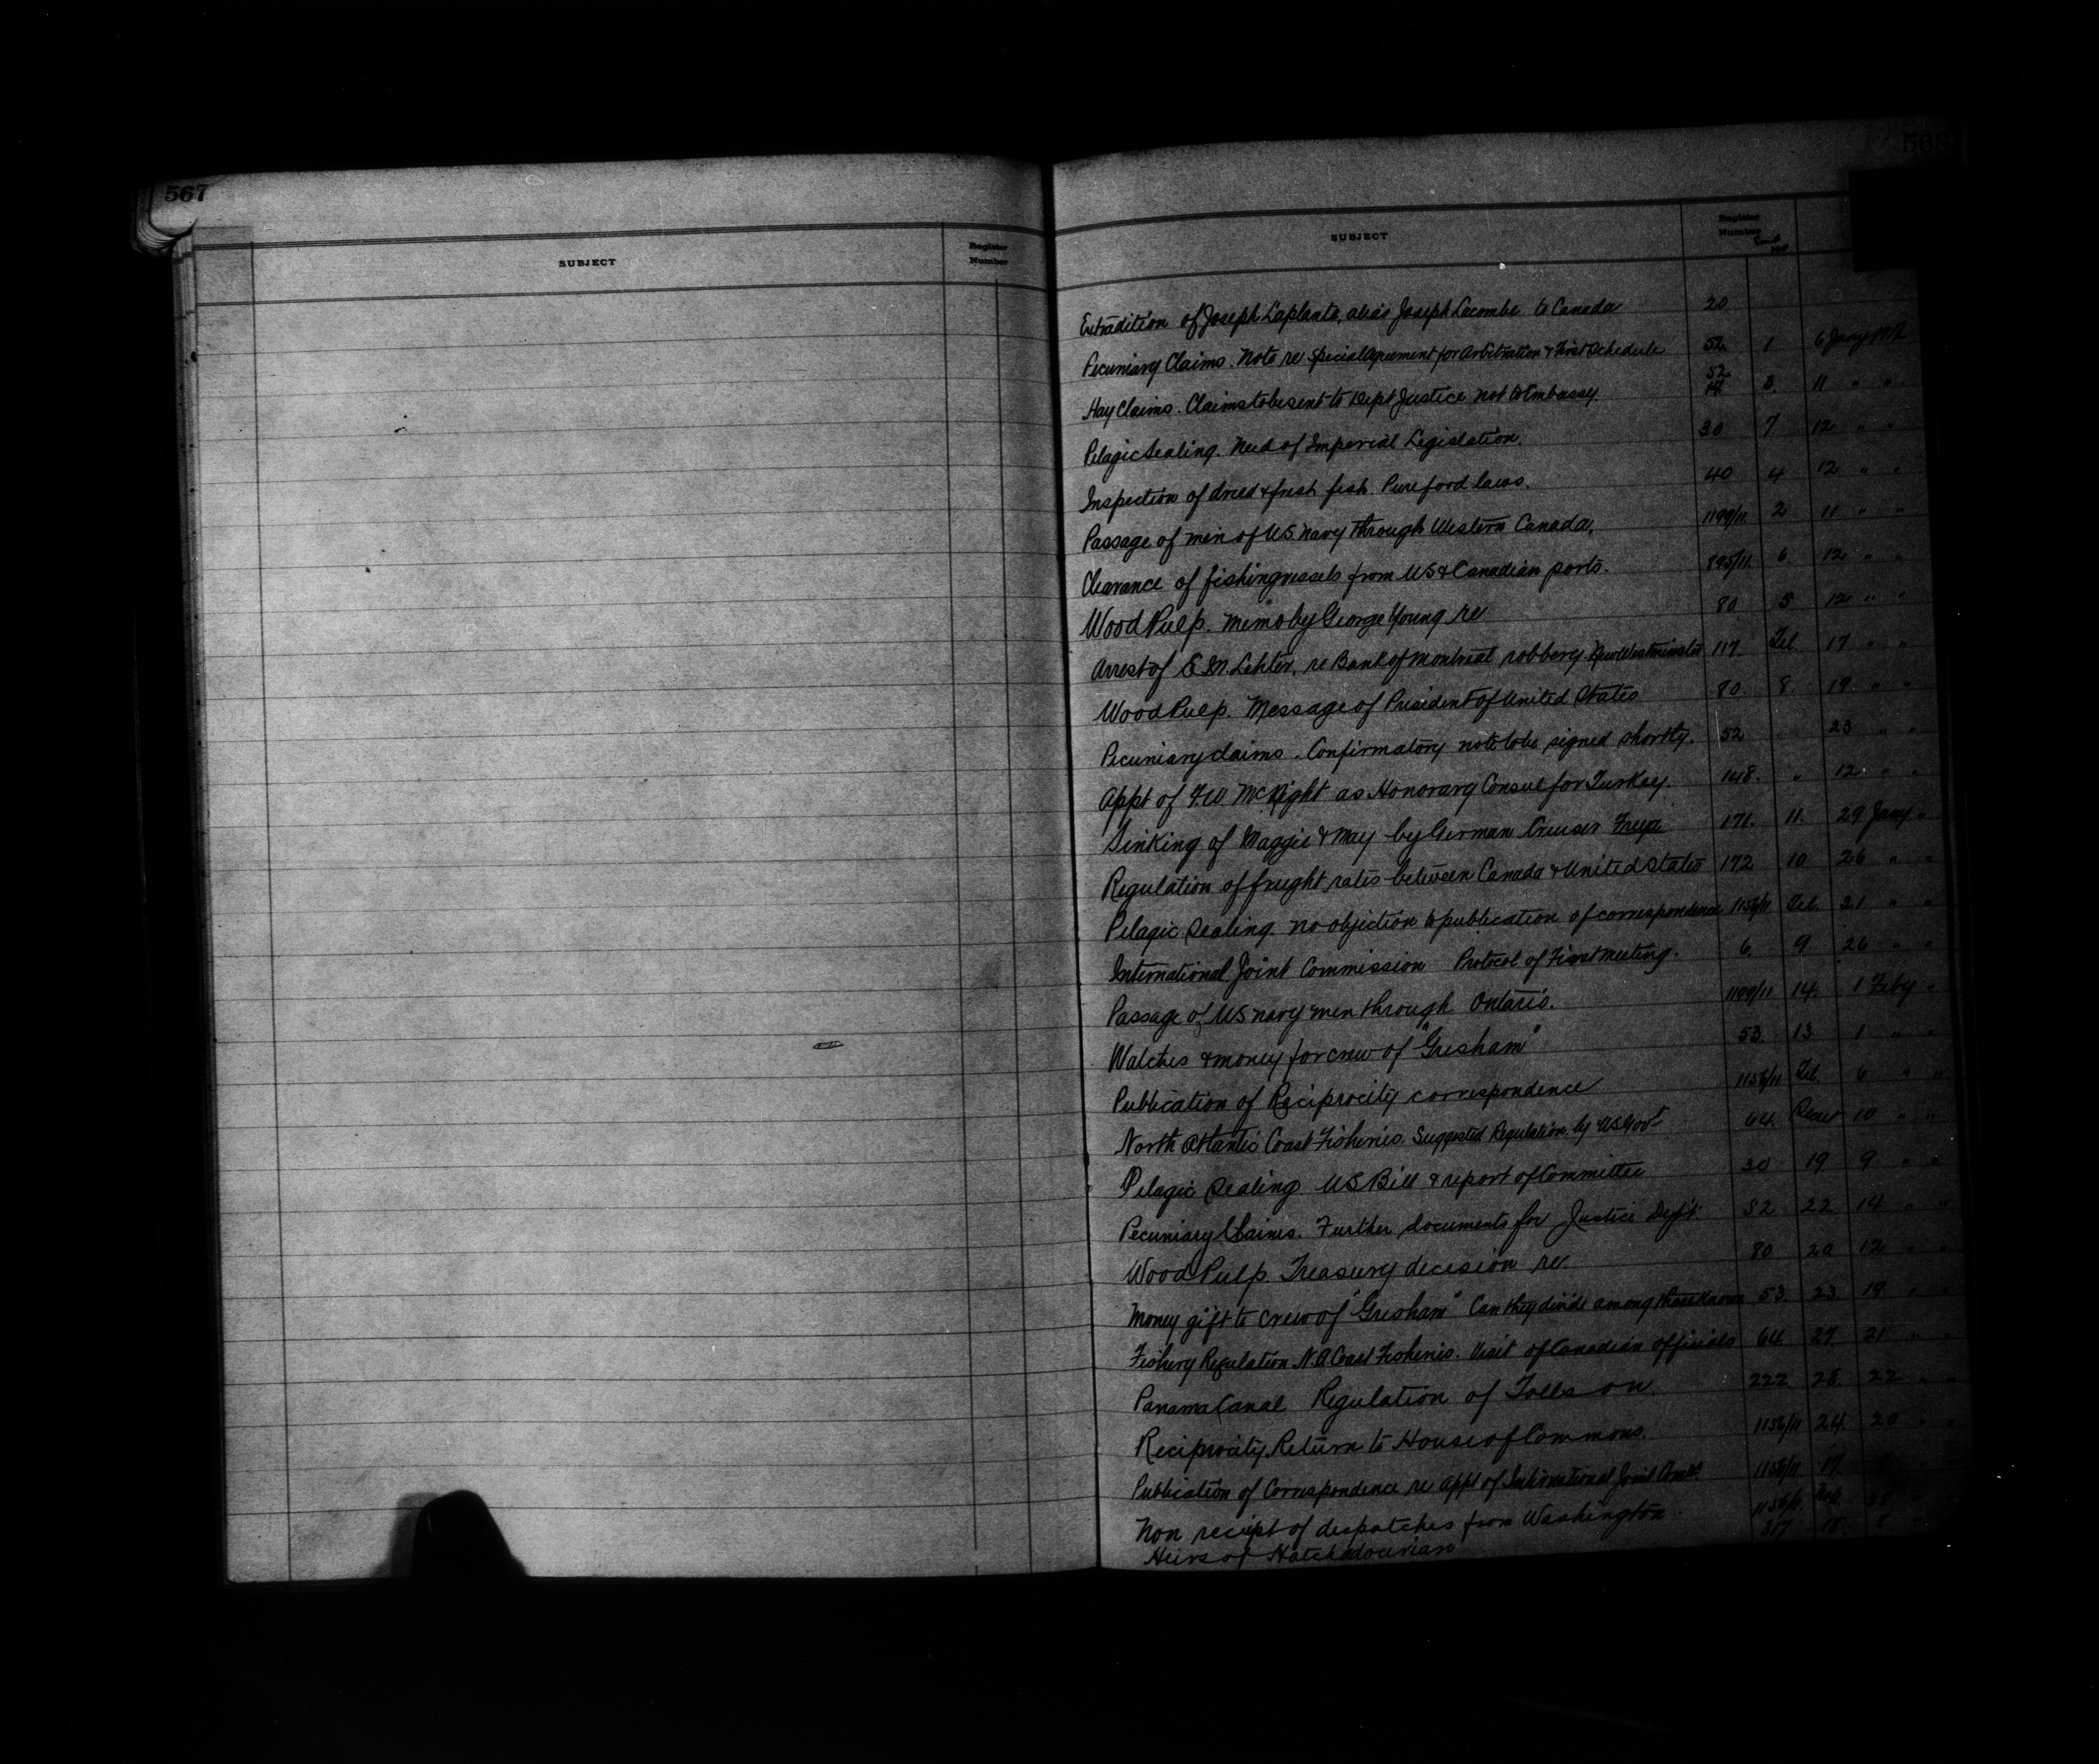 567
SUBJECT
Register
Number
568
SUBJECT
Register
Number
Extradition of Joseph Laplante, alias Joseph Lacombe to Canada 20
Pecuniary Claims. Note re Special Agreement for Arbitration & First Schedule 52. 1 6 Jany
Hay Claims. Claims to be sent to Dept Justice not to Embassy. 52 14 3. 11 " "
Pelagic Sealing. Need of Imperial Legislation. 30 7 12 " "
Inspection of dried & fresh fish. Pure food laws. 40 4 12 " "
Passage of men of US Navy through Western Canada. 1199/11. 2 11 " "
Clearance of fishing vessels from US & Canadian ports. 895/11. 6 12 " "
Wood Pulp. Memo by George Young re 80 5 12 " "
Arrest of re Bank of Montreal robbery New Westminster 117. Tel 17 " "
Wood Pulp. Message of President of United States 80. 8. 19 " "
Pecuniary claims. Confirmatory note to be signed shortly. 52 23 " "
Appt of F W McNight as Honorary Consul for Turkey. 148. " 12 " "
Sinking of Maggie & May by German Cruiser 171. 11. 29 Jany "
Regulation of freight rates between Canada & United States 172 10 26 " "
Pelagic Sealing. No objection to publication of correspondence 1156/11 Tel. 31 " "
International Joint Commission Protocol of First Meeting. 6. 9 26 " "
Passage of US navy men through Ontario. 1199/11 14. 1 Feby "
Watches & money for crew of "Gresham" 53. 13 1 " "
Publication of Reciprocity correspondence 1156/11 Tel 6 " "
North Atlantic Coast Fisheries. Suggested Regulation by US Govt 64. 10 " "
Pelagic Sealing US Bill & report of Committee 30 19 9 " "
Pecuniary Claims. Further documents for Justice Dept. 52 22 14 " "
Wood Pulp. Treasury decision re. 80 20 12 " "
Money gift to crew of "Gresham" Can they divide among those known 53. 23. 19 " "
Fishery Regulation N.A. Coast Fisheries. Visit of Canadian officials 64 27 21 " "
Panama Canal Regulation of Tolls on 222 28. 22 " "
Reciprocity. Return to House of Commons. 1156/11 24. 20 " "
Publication of Correspondence re Appt of International Joint 1156/11 17.
Non receipt of despatches from Washington 1156/11. Tel.
Heirs of Hatchadourian 317 18 8